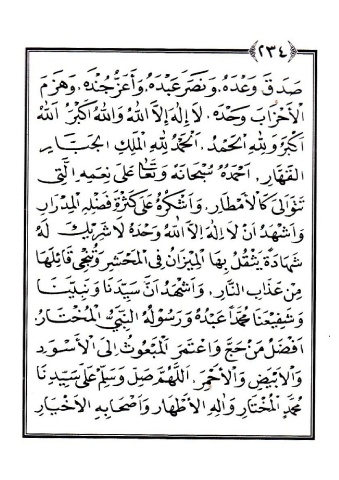 ٢٣٤
صَدَقَ وَعْدَهُ، وَنَصَرَ عَبْدَهُ، وَأَعَزَّ جُنْدَهُ، وَهَزَمَ
الْأَحْزَابَ وَحْدَهُ. لَا إِلٰهَ إِلَّا اللهُ وَاللهُ أَكْبَرُ اللهُ
أَكْبَرُ وَلِلّٰهِ الْحَمْدُ. اَلْحَمْدُ لِلّٰهِ الْمَلِكِ الْجَبَّارِ
الْقَهَّارِ. أَحْمَدُهُ سُبْحَانَهُ وَتَعَالَى عَلَى نِعَمِهِ الَّتِي
تَتَوَالَى كَالْأَمْطَارِ. وَأَشْكُرُهُ عَلَى كَثْرَةِ فَضْلِهِ الْمِدْرَارِ
وَأَشْهَدُ اَنْ لَا إِلٰهَ إِلَّا اللهُ وَحْدَهُ لَا شَرِيْكَ لَهُ
شَهَادَةً يَثْقُلُ بِهَا الْمِيْزَانُ فِى الْمَحْشَرِ وَتُنْجِى قَائِلَهَا
مِنْ عَذَابِ النَّارِ. وَاَشْهَدُ اَنَّ سَيِّدَنَا وَنَبِيَّنَا
وَشَفِيْعَنَا مُحَمَّدًا عَبْدُهُ وَرَسُوْلُهُ النَّبِيُّ الْمُخْتَارُ
اَفْضَلُ مَنْ حَجَّ وَاعْتَمَرَ الْمَبْعُوْثُ اِلَى الْأَسْوَدِ
وَالْأَبْيَضِ وَالْأَحْمَرِ. اَللّٰهُمَّ صَلِّ وَسَلِّمْ عَلَى سَيِّدِنَا
مُحَمَّدٍ الْمُخْتَارِ وَاٰلِهِ الْأَطْهَارِ وَاَصْحَابِهِ الْأَخْيَارِ